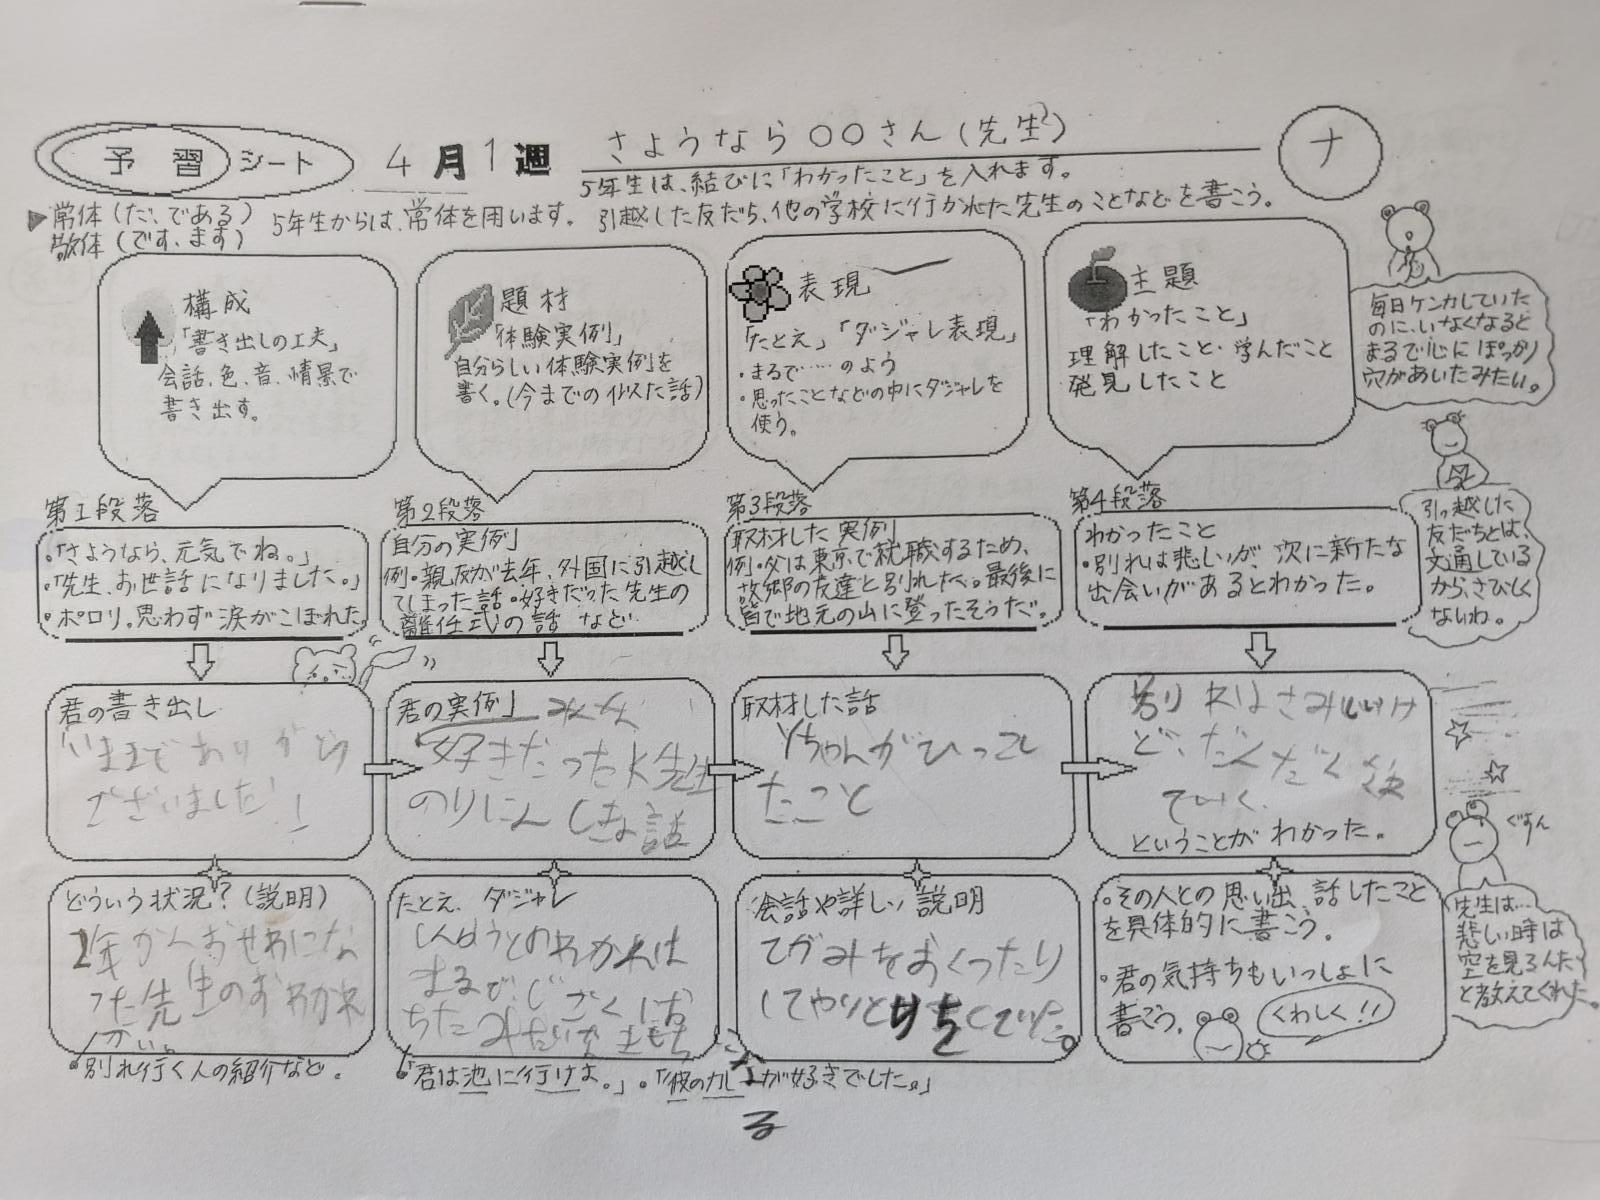 予習シート
4月1週
さようなら〇〇さん(先生)
ナ
5年生は、結びに「わかったこと」を入れます。
▶常体(だ、である)
敬体(です、ます)
5年生からは、常体を用います。
引越した友だち、他の学校に行かれた先生のことなどを書こう。
構成
「書き出しの工夫」
会話、色、音、情景で
書き出す。
題材
「体験実例」
自分らしい体験実例を
書く。(今までの似た話)
表現
「たとえ」「ダジャレ表現」
・まるで……のよう
・思ったことなどの中にダジャレを
使う。
主題
「わかったこと」
理解したこと・学んだこと
発見したこと
毎日ケンカしていた
のに、いなくなると
まるで心にぽっかり
穴があいたみたい。
第1段落
・「さようなら、元気でね。」
・「先生、お世話になりました。」
・ポロリ。思わず涙がこぼれた
第2段落
自分の実例
例・親友が去年、外国に引越し
てしまった話・好きだった先生の
離任式の話 など
第3段落
取材した実例
例・父は東京で就職するため、
故郷の友達と別れた。最後に
皆で地元の山に登ったそうだ。
第4段落
わかったこと
・別れは悲しいが、次に新たな
出会いがあるとわかった。
引っ越した
友だちとは、
文通している
から、さびしく
ないわ。
君の書き出し
いままでありがとう
ございました!
君の実例
好きだったK先生
のりにんしきの話
取材した話
Yちゃんがひっこし
たこと
別れはさみしいけ
ど、だんだん
ていく
ということが わかった。
ぐすん
どういう状況?(説明)
2年かんおせわにな
った先生のおわかれ
かい。
・別れ行く人の紹介など。
たとえ、ダジャレ
しんゆうとのわかれは
まるで、じごくにお
ちたみたいな気もち
・「君は池に行けよ。」・「彼のカレーが好きでした。」
る
会話や詳しい説明
てがみをおくったり
してやりとりをしていた。
・その人との思い出、話したこと
を具体的に書こう。
・君の気持ちもいっしょに
書こう。
くわしく!!
先生は…
悲しい時は
空を見るんだ
と教えてくれた。